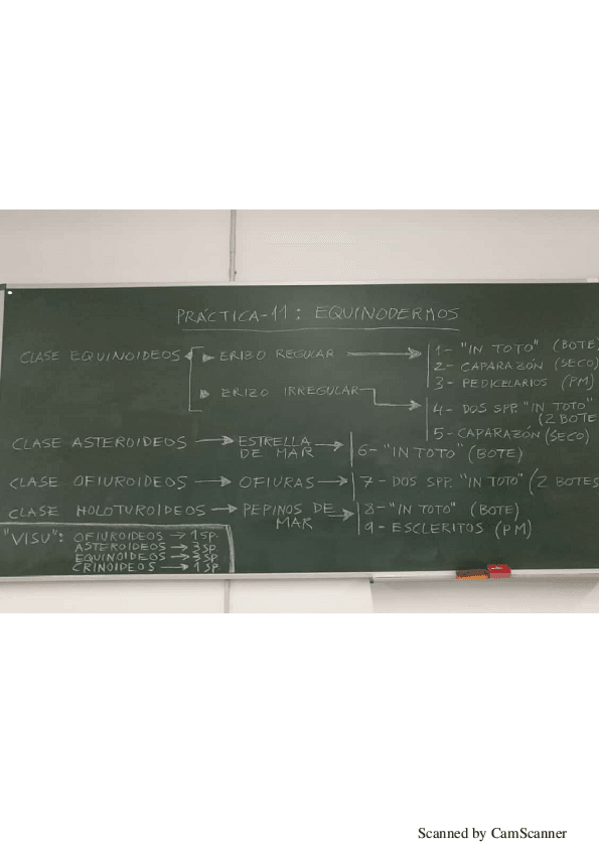 PRÁCTICA-11: EQUINODERMOS
CLASE EQUINOIDEOS
ERIZO REGULAR
1- "IN TOTO" (BOTE)
2- CAPARAZÓN (SECO)
3- PEDICELARIOS (PM)
ERIZO IRREGULAR
4- DOS SPP. "IN TOTO"
(2 BOTE
5- CAPARAZÓN (SECO)
CLASE ASTEROIDEOS → ESTRELLA DE MAR → 6- "IN TOTO" (BOTE)
CLASE OFIUROIDEOS → OFIURAS → 7- DOS SPP. "IN TOTO" (2 BOTES
CLASE HOLOTUROIDEOS → PEPINOS DE MAR → 8- "IN TOTO" (BOTE)
9- ESCLERITOS (PM)
"VISU": OFIUROIDEOS → 1 SP.
ASTEROIDEOS → 3 SP.
EQUINOIDEOS → 3 SP
CRINOIDEOS → 1 SP
Scanned by CamScanner